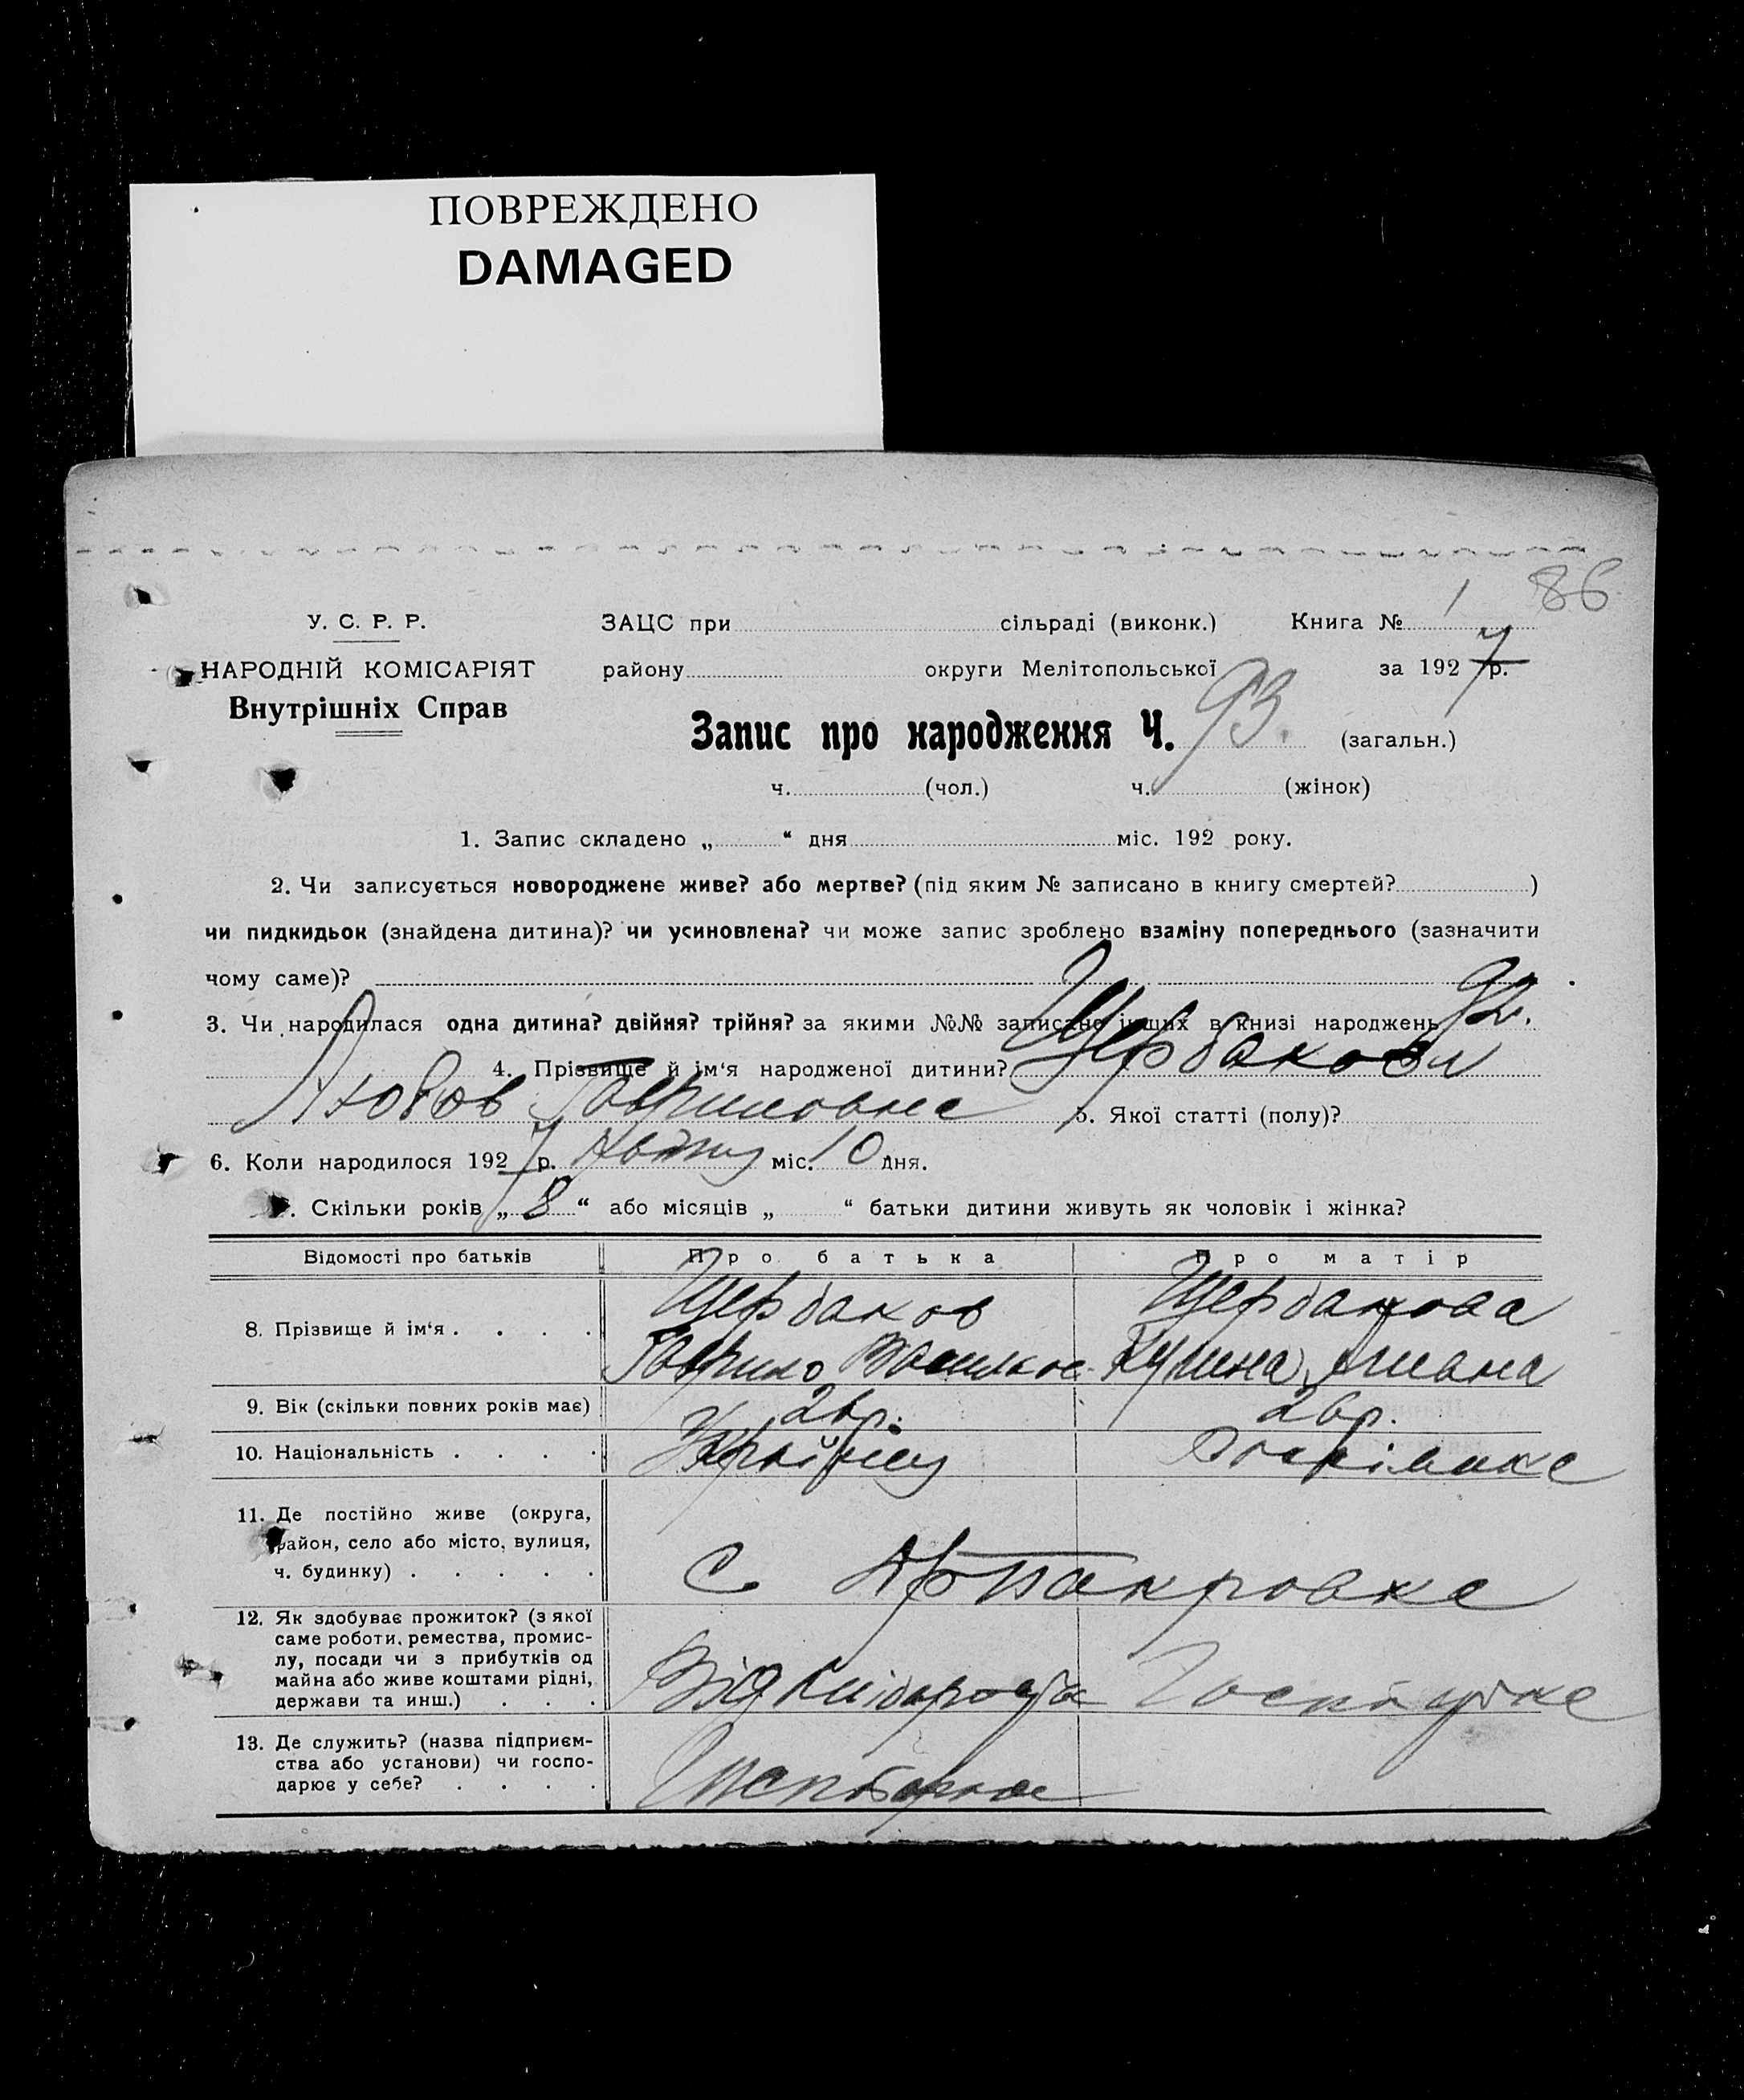 ПОВРЕЖДЕНО
DAMAGED
86
У. С. Р. Р.
ЗАЦС при сільраді (виконк.) Книга № 1
НАРОДНІЙ КОМІСАРІЯТ
району округи Мелітопольської за 1927 р.
Внутрішніх Справ
Запис про народження Ч. 93. (загальн.)
ч. (чол.) ч. (жінок)
1. Запис складено „ “ дня міс. 192 року.
2. Чи записується новороджене живе? або мертве? (під яким № записано в книгу смертей? )
чи пидкидьок (знайдена дитина)? чи усиновлена? чи може запис зроблено взаміну попереднього (зазначити
чому саме)?
3. Чи народилася одна дитина? двійня? трійня? за якими №№ записано інших в книзі народжень 92.
4. Прізвище й ім‘я народженої дитини? Щербакова
Любов Гавриловна 5. Якої статті (полу)?
6. Коли народилося 1927 р. міс. 10 дня.
7. Скільки років „ 8 “ або місяців „ “ батьки дитини живуть як чоловік і жінка?
Відомості про батьків Про батька Про матір
8. Прізвище й ім‘я . . . . Щербаков Щербакова
Гаврило
9. Вік (скільки повних років має) 26 р. 26 р.
10. Національність . . . .
11. Де постійно живе (округа,
район, село або місто, вулиця,
ч. будинку) . . . . . С
12. Як здобуває прожиток? (з якої
саме роботи, ремества, промис-
лу, посади чи з прибутків од
майна або живе коштами рідні,
держави та инш.) . . .
13. Де служить? (назва підприєм-
ства або установи) чи госпо-
дарює у себе? . . . .